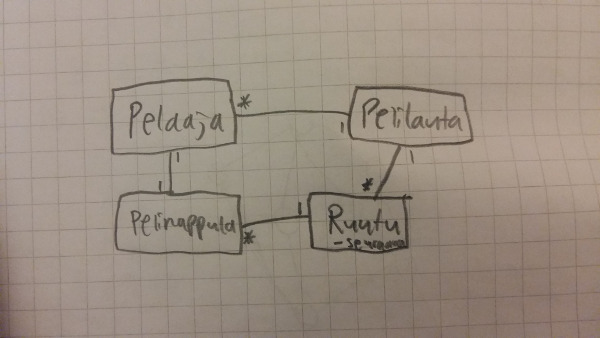 Pelaaja
*
1
Pelilauta
1
1
1
*
Pelinappula
*
1
Ruutu
-seuraava